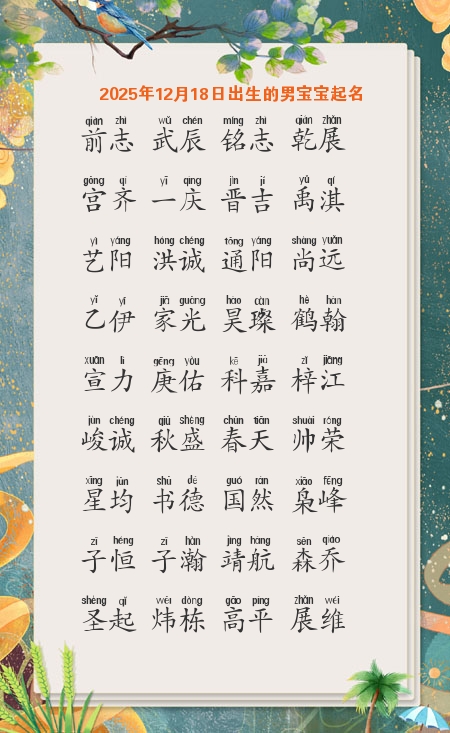 2025年12月18日出生的男宝宝起名
qián zhì wǔ chén míng zhì qián zhǎn
前志 武辰 铭志 乾展
gōng qí yī qìng jìn jí yǔ qí
宫齐 一庆 晋吉 禹淇
yì yáng hóng chéng tōng yáng shàng yuǎn
艺阳 洪诚 通阳 尚远
yǐ yī jiā guāng hào càn hè hàn
乙伊 家光 昊璨 鹤翰
xuān lì gēng yòu kē jiā zǐ jiāng
宣力 庚佑 科嘉 梓江
jùn chéng qiū shèng chūn tiān shuài róng
峻诚 秋盛 春天 帅荣
xīng jūn shū dé guó rán xiāo fēng
星均 书德 国然 枭峰
zǐ héng zǐ hàn jìng háng sēn qiáo
子恒 子瀚 靖航 森乔
shèng qǐ wěi dòng gāo píng zhǎn wéi
圣起 炜栋 高平 展维